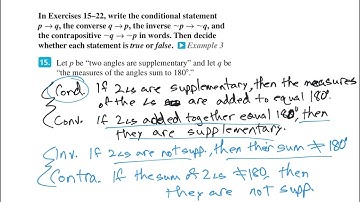 In Exercises 15–22, write the conditional statement
p → q, the converse q → p, the inverse ~p → ~q, and
the contrapositive ~q → ~p in words. Then decide
whether each statement is true or false. ▶ Example 3
15. Let p be “two angles are supplementary” and let q be
“the measures of the angles sum to 180°.”
Cond. If 2∠s are supplementary, then the measures
of the ∠s are added to equal 180°.
Conv. If 2∠s added together equal 180°, then
they are supplementary.
Inv. If 2∠s are not supp. then their sum ≠ 180°
Contra. If the sum of 2∠s ≠ 180, then
they are not supp.